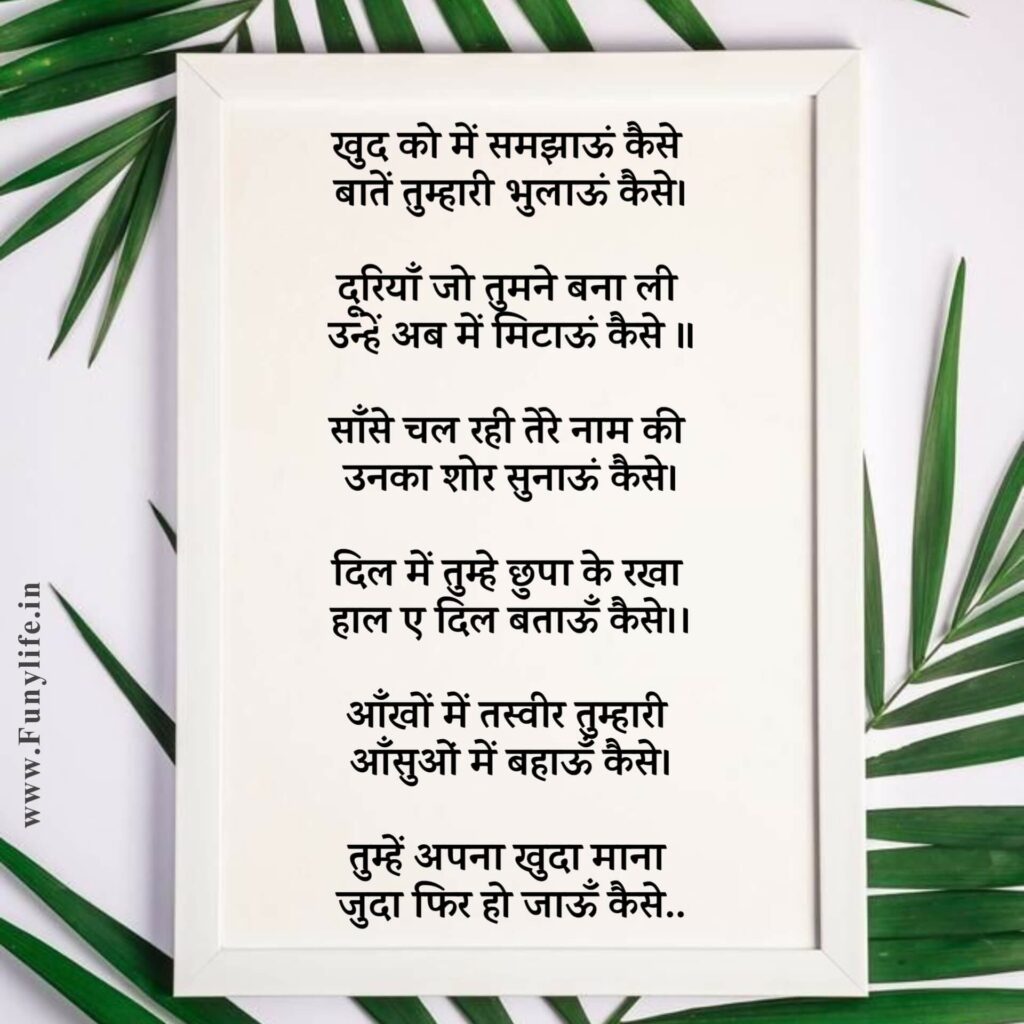 खुद को में समझाऊं कैसे
बातें तुम्हारी भुलाऊं कैसे।
दूरियाँ जो तुमने बना ली
उन्हें अब में मिटाऊं कैसे ॥
साँसे चल रही तेरे नाम की
उनका शोर सुनाऊं कैसे।
दिल में तुम्हे छुपा के रखा
हाल ए दिल बताऊँ कैसे।।
आँखों में तस्वीर तुम्हारी
आँसुओं में बहाऊँ कैसे।
तुम्हें अपना खुदा माना
जुदा फिर हो जाऊँ कैसे..
www.Funylife.in